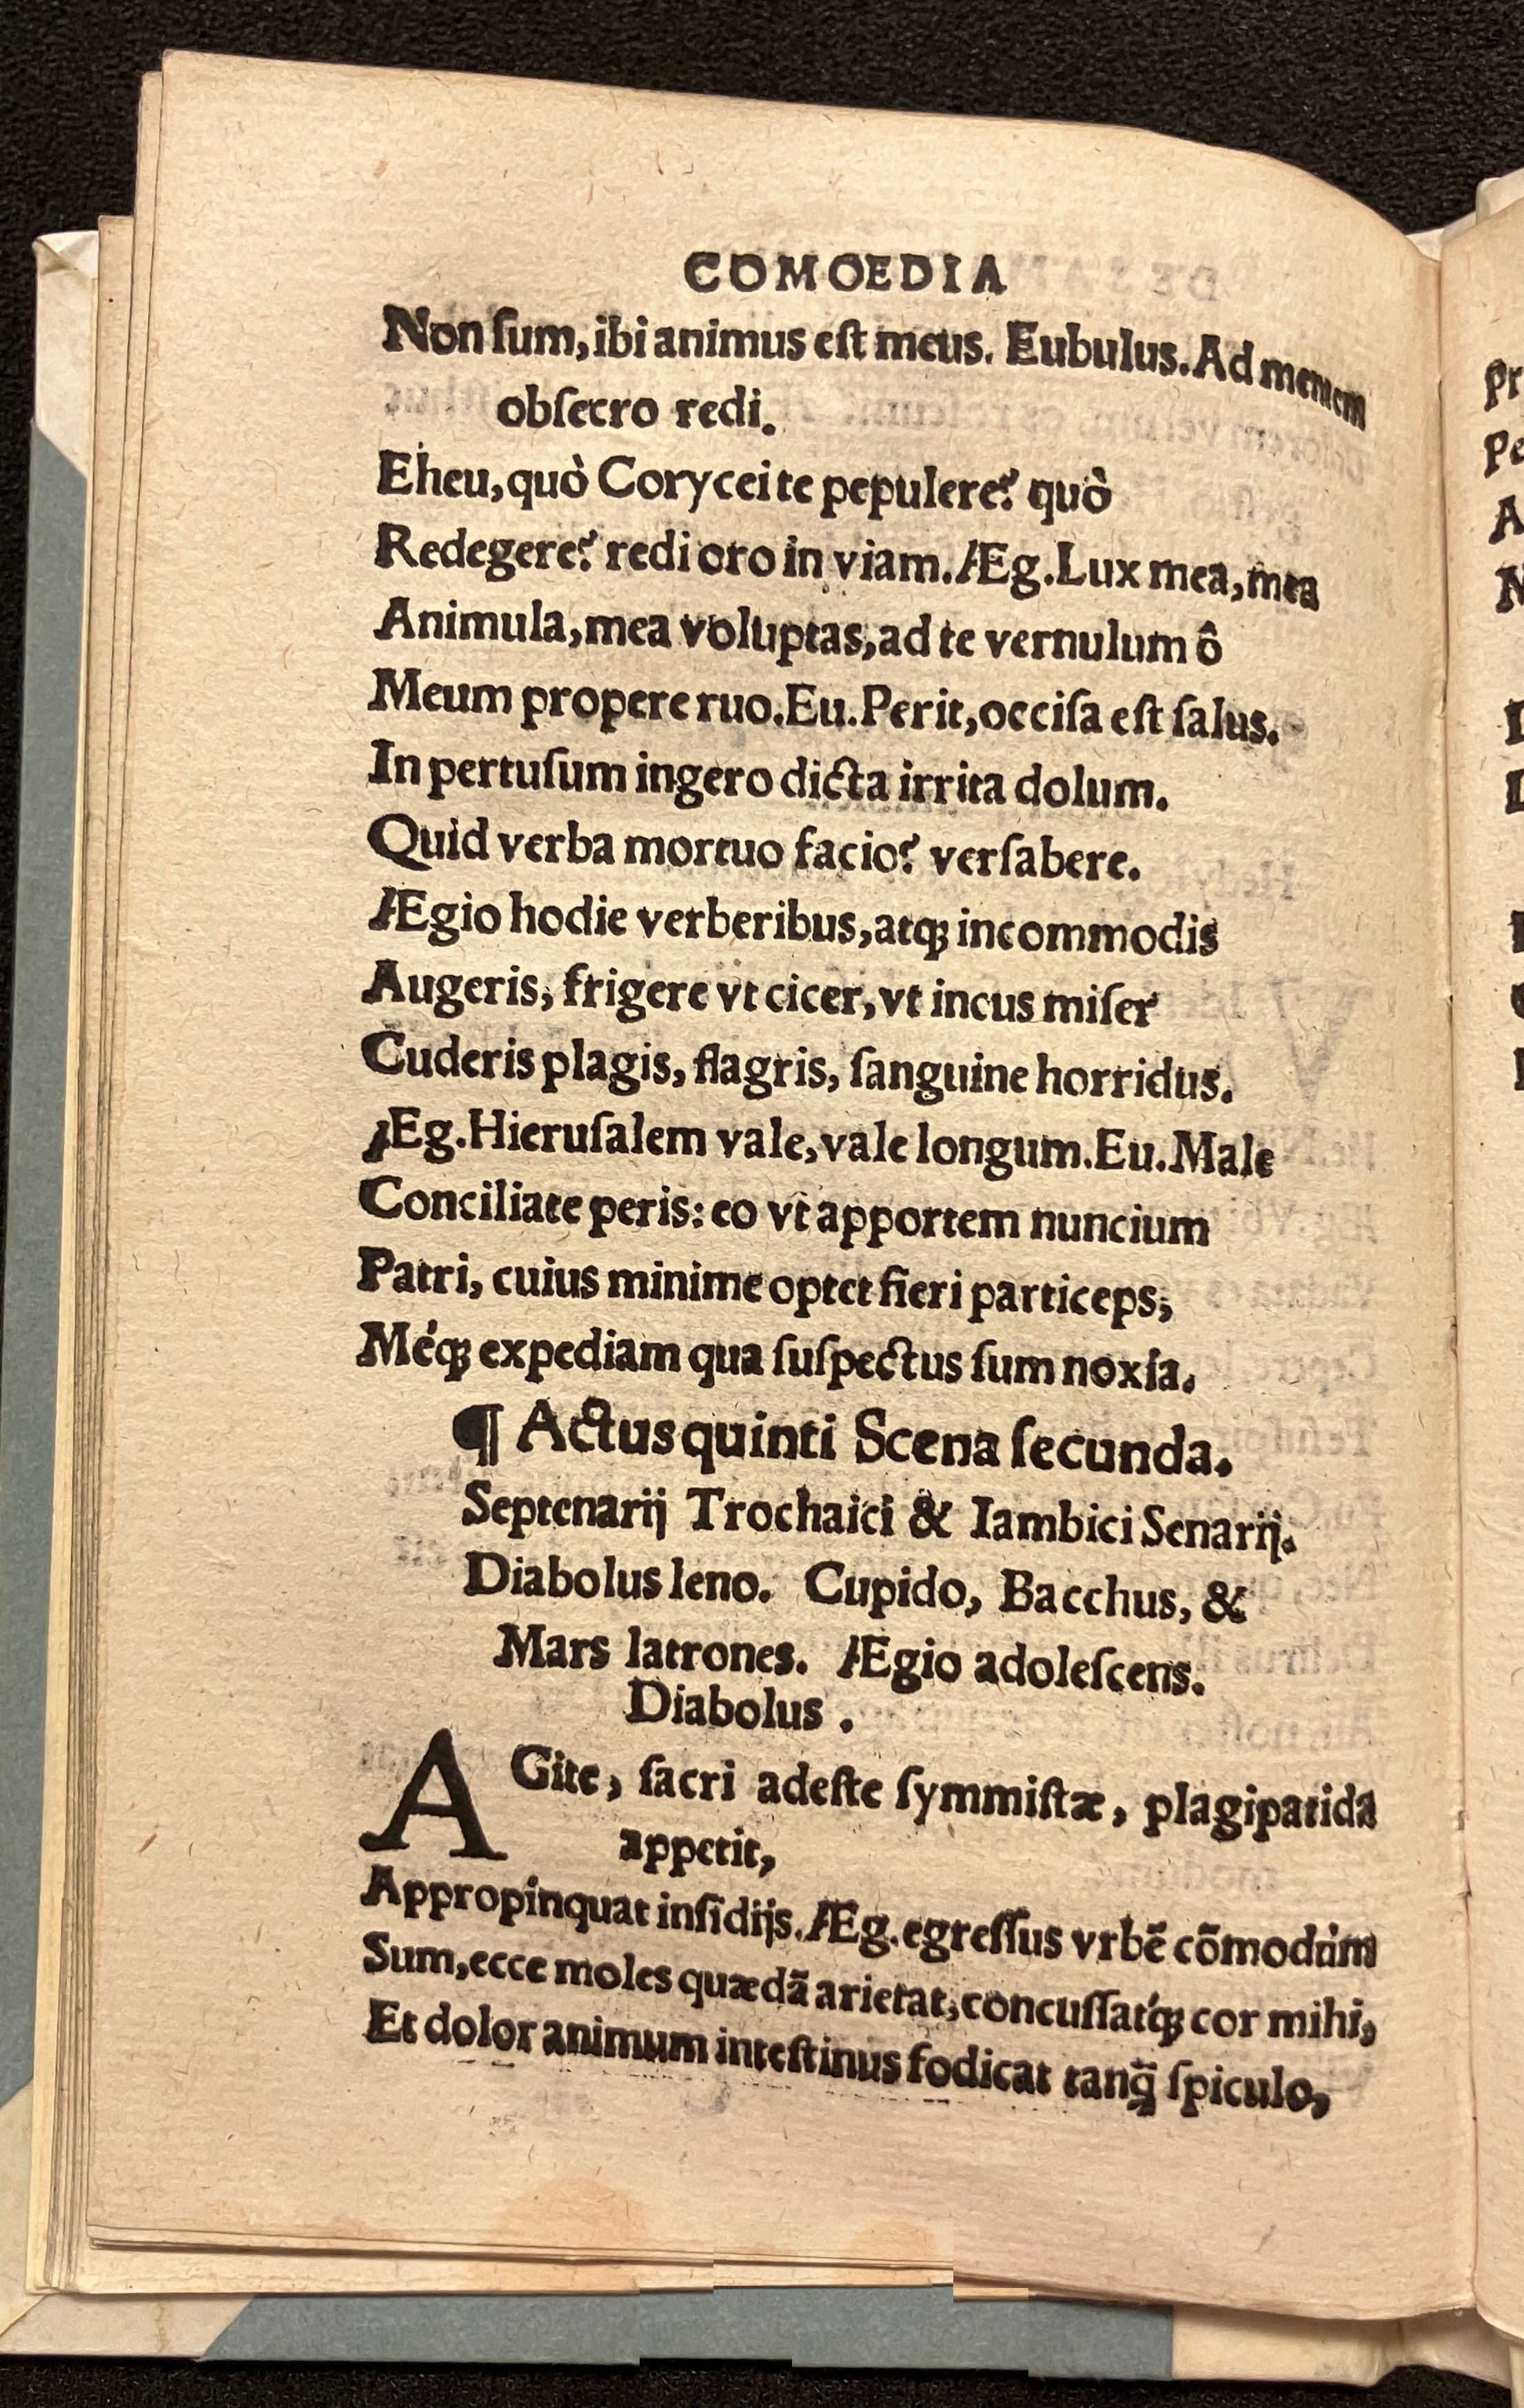 COMOEDIA
Non ſum, ibi animus eſt meus. Eubulus. Ad mentem
obſecro redi.
Eheu, quò Corycei te pepulere? quò
Redegere? redi oro in viam. Æg. Lux mea, mea
Animula, mea voluptas, ad te vernulum ô
Meum propere ruo. Eu. Perit, occiſa eſt ſalus.
In pertuſum ingero dicta irrita dolum.
Quid verba mortuo facio? verſabere.
Ægio hodie verberibus, atq; incommodis
Augeris, frigere vt cicer, vt incus miſer
Cuderis plagis, flagris, ſanguine horridus.
Æg. Hieruſalem vale, vale longum. Eu. Male
Conciliate peris: eo vt apportem nuncium
Patri, cuius minime optet fieri particeps,
Méq; expediam qua ſuſpectus ſum noxia.
¶ Actus quinti Scena ſecunda.
Septenarij Trochaici & Iambici Senarij.
Diabolus leno. Cupido, Bacchus, &
Mars latrones. Ægio adoleſcens.
Diabolus.
AGite, ſacri adeſte ſymmiſtæ, plagipatida
appetit,
Appropinquat inſidijs. Æg. egreſſus vrbē cōmodùm
Sum, ecce moles quædā arietat, concuſſatq́; cor mihi,
Et dolor animum inteſtinus fodicat tanq̃ ſpiculo,